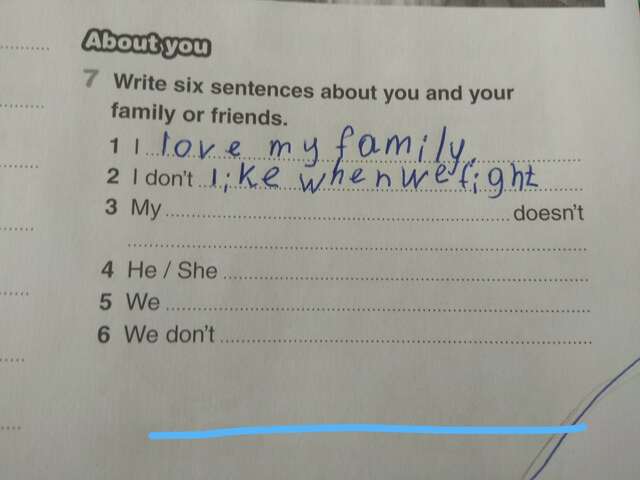 About you
7 Write six sentences about you and your
family or friends.
1 I love my family.
2 I don't like when we fight
3 My ........ doesn't
4 He / She
5 We
6 We don't